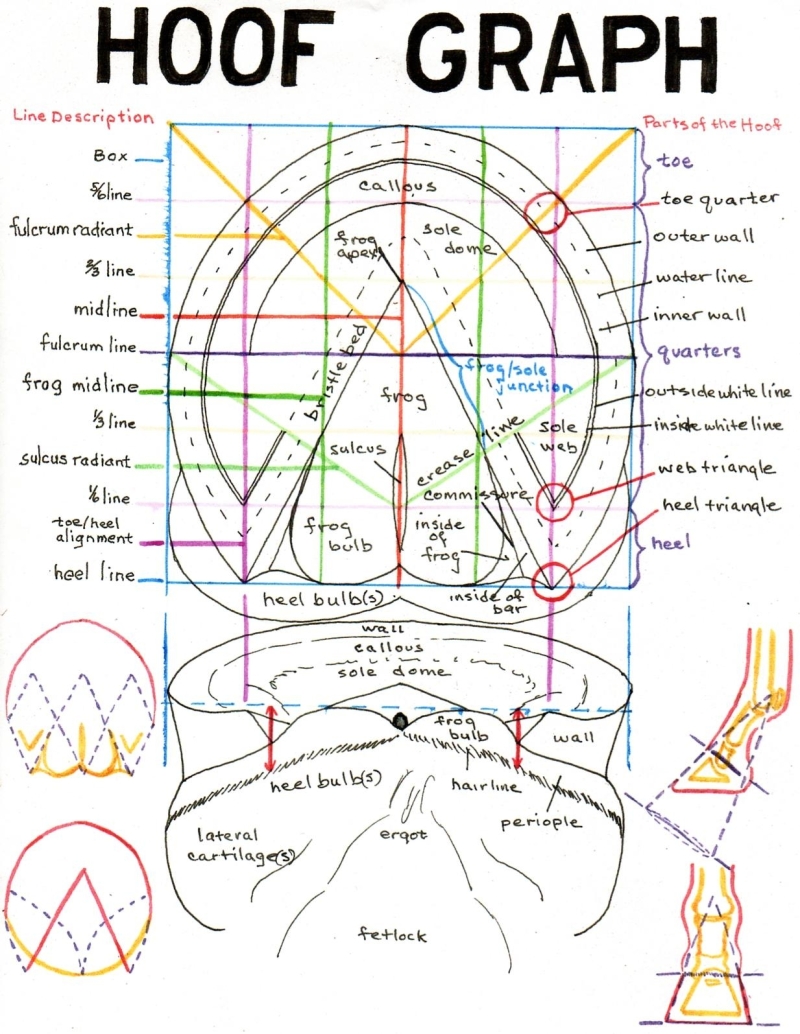 HOOF GRAPH
Line Description
Box
5/6 line
fulcrum radiant
2/3 line
midline
fulcrum line
frog midline
1/3 line
sulcus radiant
1/6 line
toe/heel
alignment
heel line
Parts of the Hoof
toe
toe quarter
outer wall
water line
inner wall
quarters
outside white line
inside white line
web triangle
heel triangle
heel
callous
frog
apex
sole
dome
bristle bed
frog/sole
junction
frog
sole
web
crease line
sulcus
commissure
frog
bulb
inside
of
frog
inside of
bar
heel bulb(s)
wall
callous
sole dome
frog
bulb
wall
heel bulb(s)
hairline
periople
lateral
cartilage(s)
ergot
fetlock